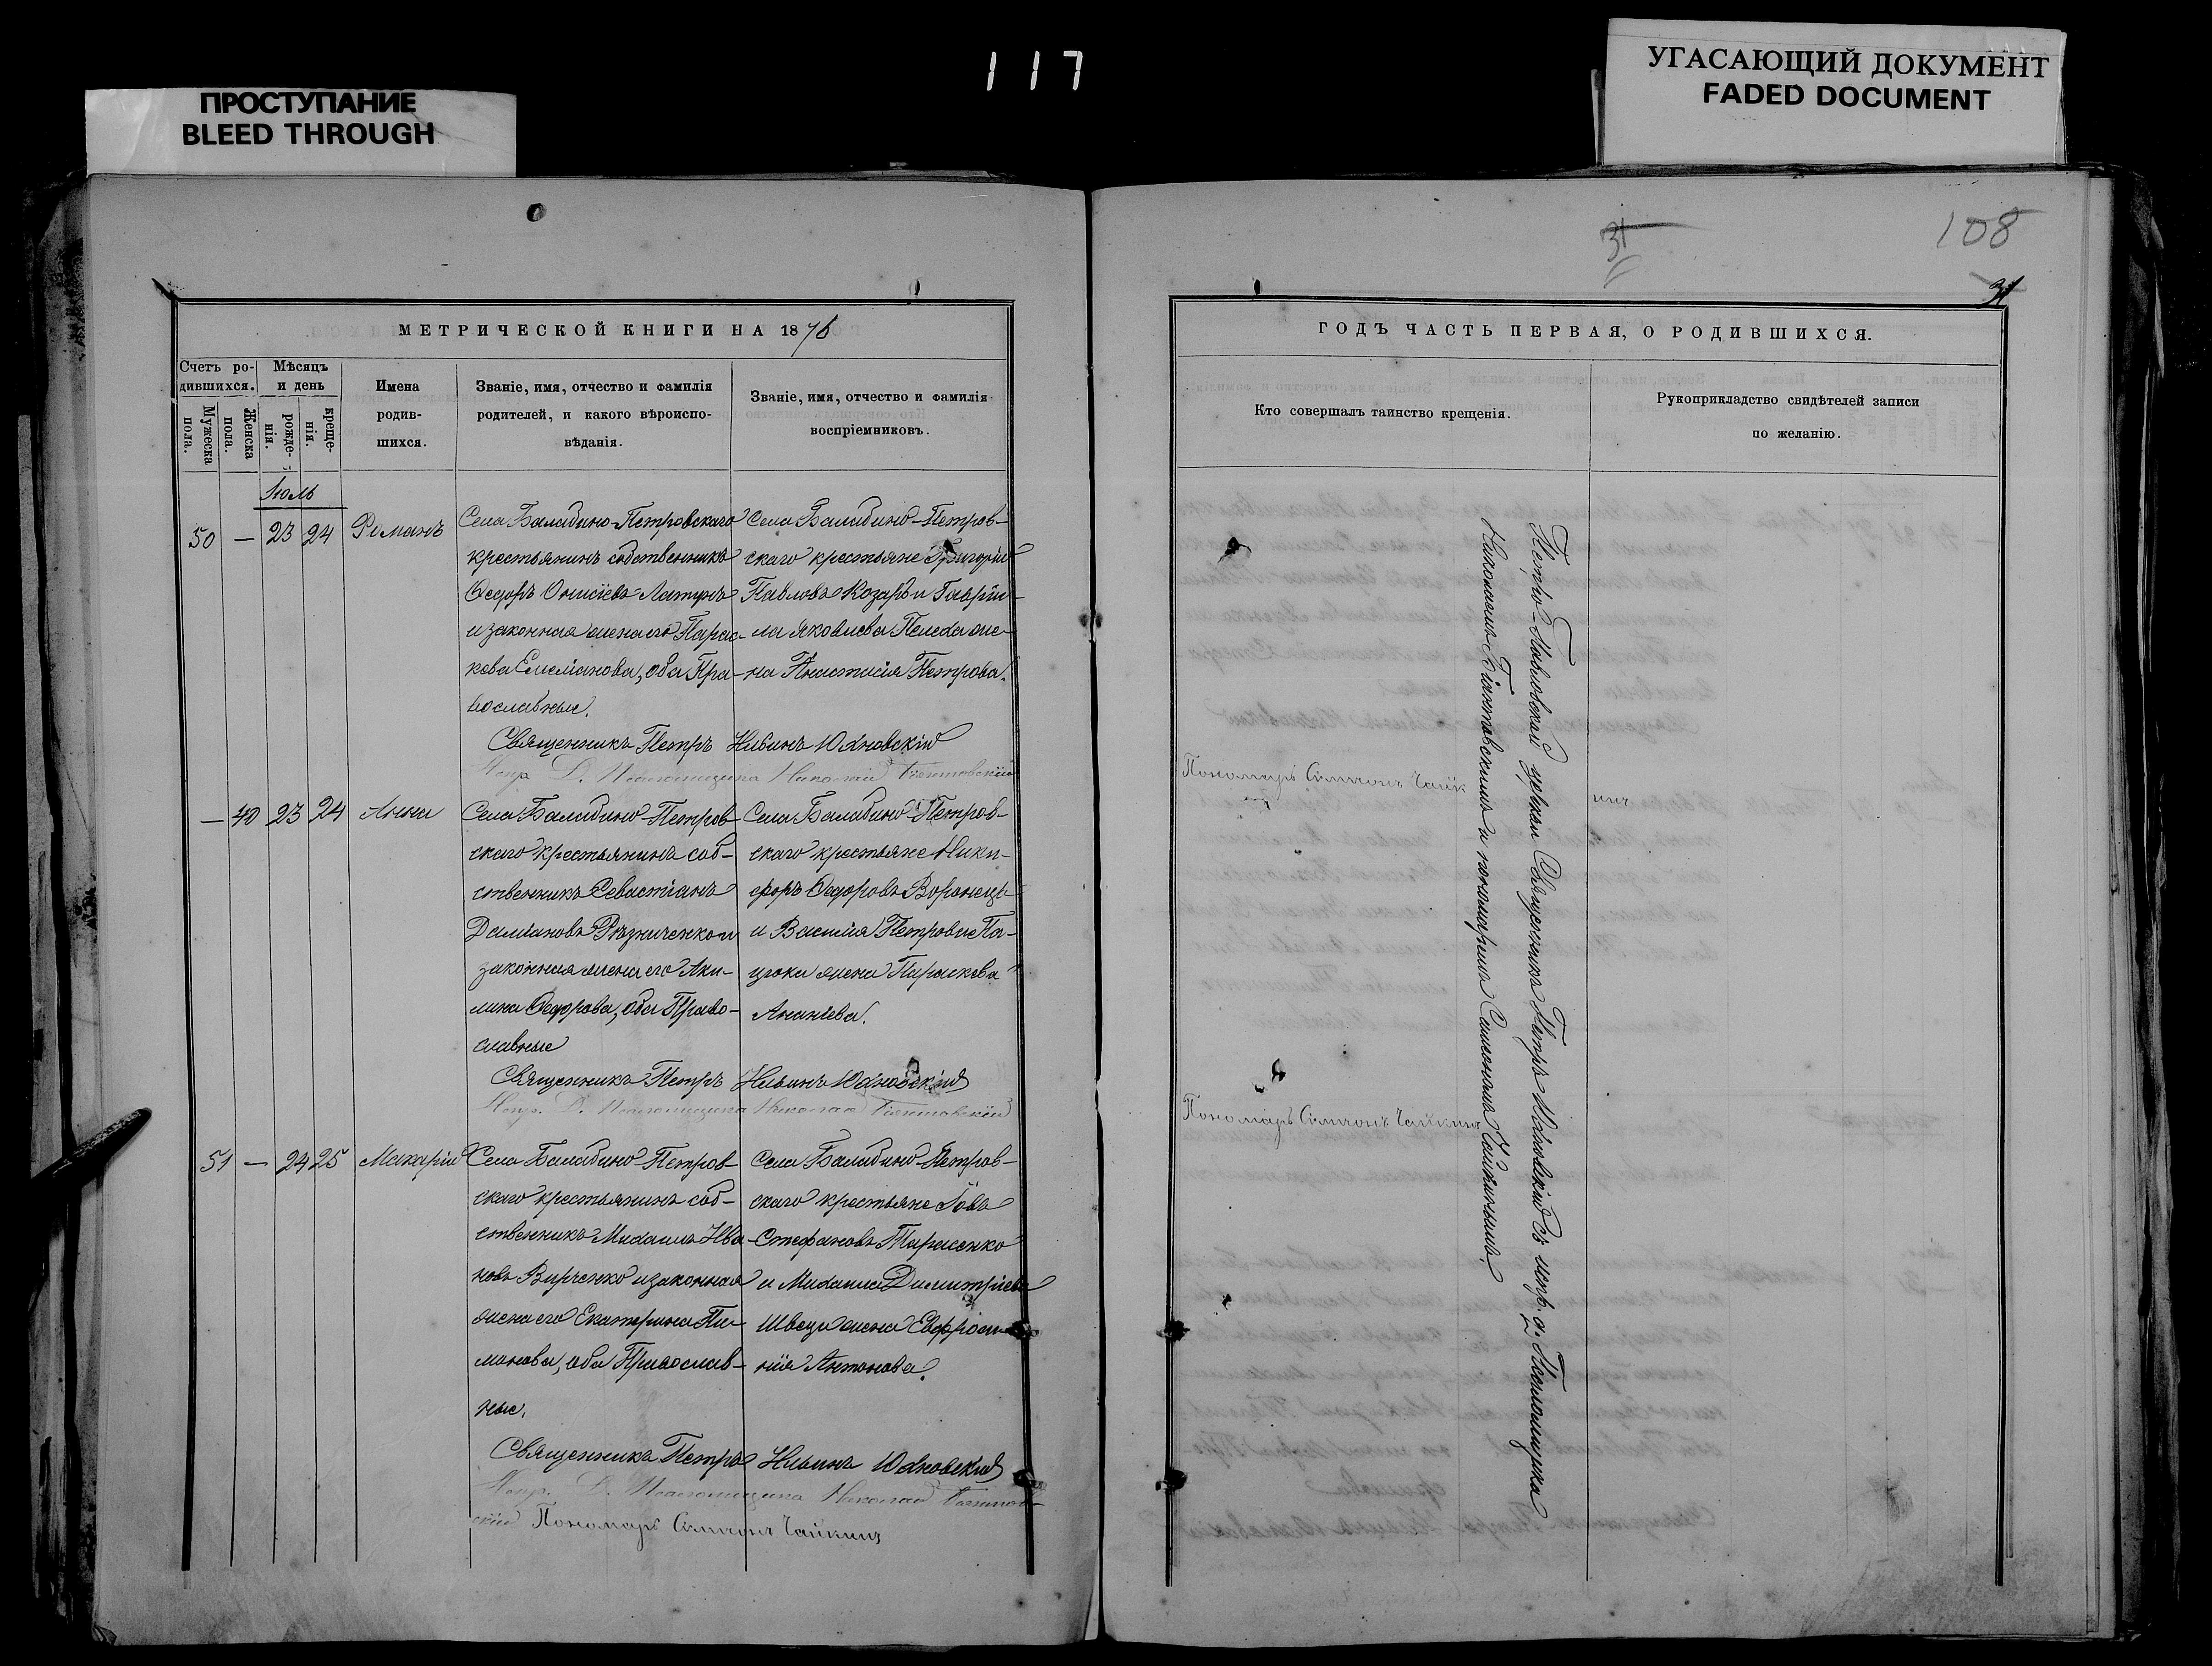 117
ПРОСТУПАНИЕ
BLEED THROUGH
УГАСАЮЩИЙ ДОКУМЕНТ
FADED DOCUMENT
МЕТРИЧЕСКОЙ КНИГИ НА 1876
Счетъ ро-
дившихся.
Мужеска пола.
Женска пола.
Мѣсяцъ
и день
рожде-
нія.
креще-
нія.
Имена
родив-
шихся.
Званіе, имя, отчество и фамилія
родителей, и какого вѣроиспо-
вѣданія.
Званіе, имя, отчество и фамилія
воспріемниковъ.
Іюль
50 — 23 24 Романъ
Села Балабино-Петровскаго
крестьянинъ собственникъ
Ѳедоръ Онисіевъ Латунъ
и законная жена его Парас-
кева Емеліанова, оба Пра-
вославные.
Села Балабино-Петров-
скаго крестьяне Григорій
Павловъ Козарь и Гаврии-
ла Яковлева Пелеха же-
на Анастасія Петрова.
Священникъ Петръ Ильинъ Юхновскій
Испр. д. Псаломщика Николай Гіянтовскій
— 40 23 24 Анна
Села Балабино-Петров-
скаго крестьянинъ соб-
ственникъ Севастіанъ
Даміановъ Рѣзниченко и
законная жена его Аки-
лина Ѳедорова, оба Право-
славные
Села Балабино-Петров-
скаго крестьяне Ники-
форъ Ѳедоровъ Воронецъ
и Василія Петрова Па-
цюка жена Параскева
Ананіева.
Священникъ Петръ Ильинъ Юхновскій
Испр. д. Псаломщика Николай Гіянтовскій
51 — 24 25 Макарій
Села Балабино Петров-
скаго крестьянинъ соб-
ственникъ Михаилъ Ива-
новъ Вирченко и законная
жена его Екатерина Пи-
монова, оба Православ-
ные.
Села Балабино-Петров-
скаго крестьяне Іовъ
Стефановъ Тарасенко
и Михаила Димитріева
Швеца жена Евфроси-
нія Антонова.
Священникъ Петръ Ильинъ Юхновскій
Испр. д. Псаломщика Николай Гіянтов-
скій Пономарь Симеонъ Чайкинъ
108
31
31
ГОДЪ ЧАСТЬ ПЕРВАЯ, О РОДИВШИХСЯ.
Кто совершалъ таинство крещенія.
Рукоприкладство свидѣтелей записи
по желанію.
Петро-Павловской церкви Священникъ Петръ Юхновскій съ испр. д. Псаломщика
Николаемъ Гіянтовскимъ и пономаремъ Симеономъ Чайкинымъ.
Пономарь Симеонъ Чайкинъ
Пономарь Симеонъ Чайкинъ